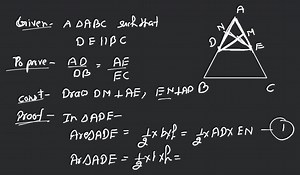 Given- A ΔABC such that
DE || BC
To prove - AD/DB = AE/EC
Const- Draw DM ⊥ AE, EN ⊥ AD
Proof- In ΔADE-
Ar ΔADE = 1/2 × b × h = 1/2 × AD × EN - 1
Ar ΔADE = 1/2 × b × h =
A
N
M
D
E
B
C